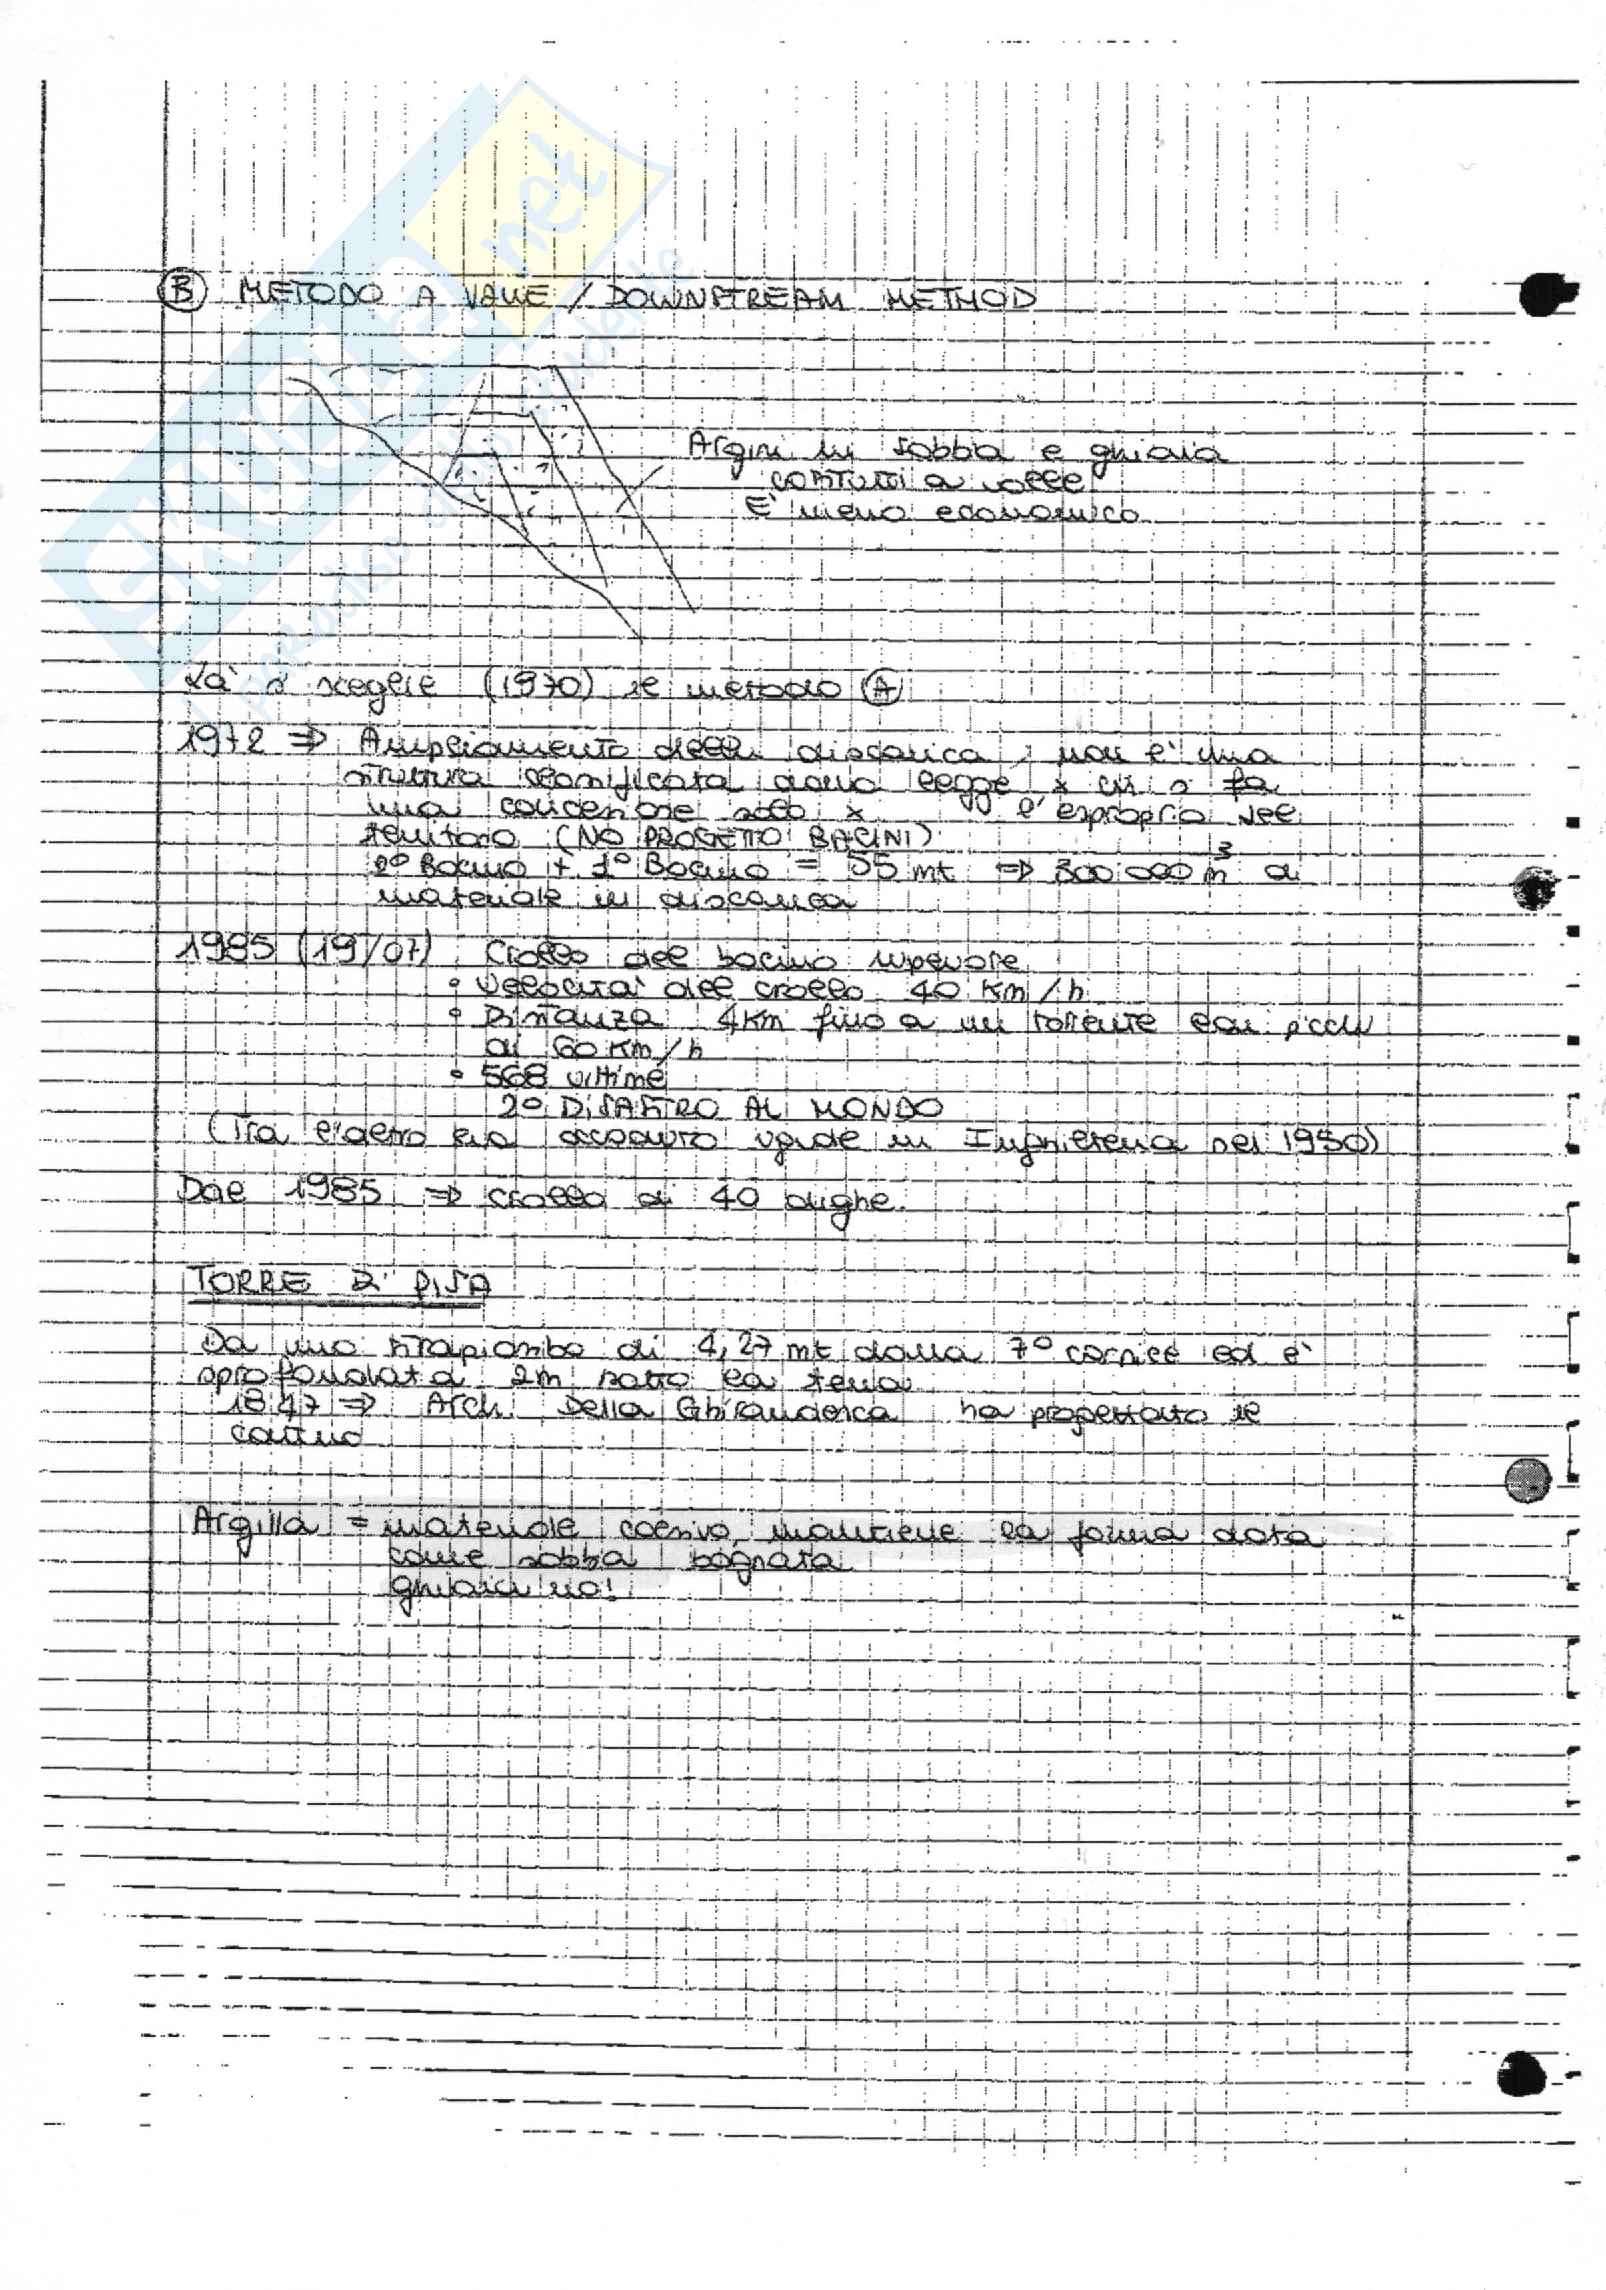 B METODO A VALLE / DOWNSTREAM METHOD
Argini in sabbia e ghiaia
costruiti a valle
E' meno economico
si sceglie (1970) il metodo A
1972 ⇒ Ampliamento della discarica, non è una
struttura classificata dalla legge x cui si fa
una concessione solo x l'esproprio del
territorio (NO PROGETTO BACINI)
2° Bacino + 1° Bacino = 55 mt ⇒ 300 000 m³ di
materiale in discarica
1985 (19/07) Crollo del bacino superiore
• Velocità del crollo 40 Km/h
• Distanza 4Km fino a un torrente con picchi
di 60 Km/h
• 568 vittime
2° DISASTRO AL MONDO
(Tra l'altro era accaduto in Inghilterra nel)
Dal 1985 ⇒ crollo di 40 dighe
TORRE DI PISA
Da uno strapiombo di 4,27 mt dalla 7° cornice ed è
sprofondata 2m sotto la terra
18 47 ⇒ Arch. Della Gherardesca ha progettato il
catino
Argilla = materiale coesivo, mantiene la forma data
come sabbia bagnata
ghiaia no!
SKUOLA.net
il paradiso dello studente